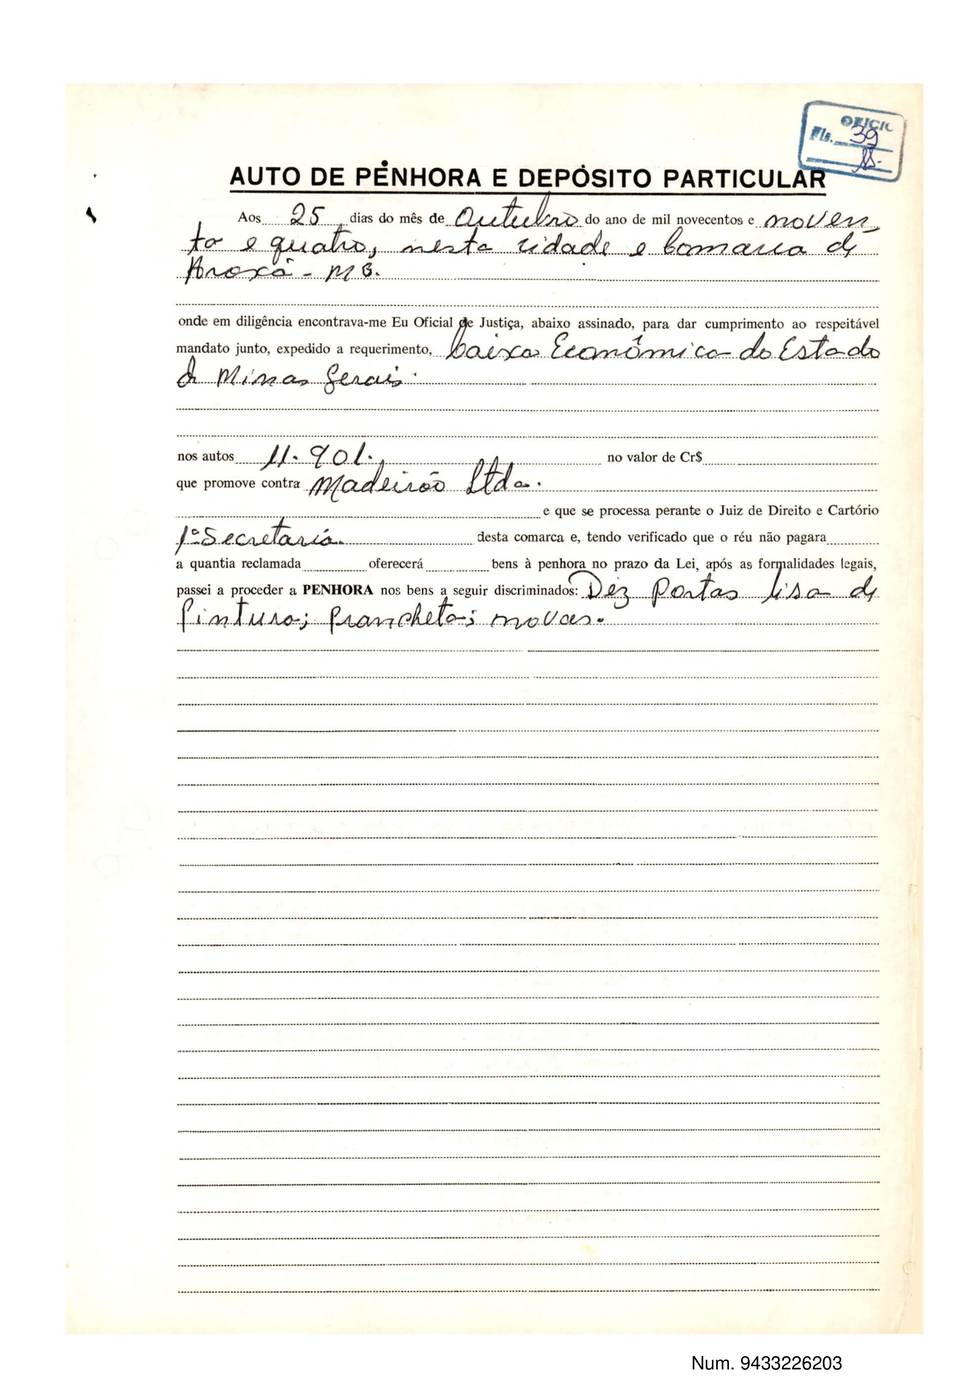 OFICIO
Fls. 39
AUTO DE PENHORA E DEPÓSITO PARTICULAR
Aos 25 dias do mês de Outubro do ano de mil novecentos e noven
ta e quatro, nesta cidade e Comarca de
Araxá - MG.
onde em diligência encontrava-me Eu Oficial de Justiça, abaixo assinado, para dar cumprimento ao respeitável
mandato junto, expedido a requerimento, Caixa Econômica do Estado
de Minas Gerais.
nos autos 11.901. no valor de Cr$
que promove contra Madeirão Ltda.
e que se processa perante o Juiz de Direito e Cartório
1ª Secretaria. desta comarca e, tendo verificado que o réu não pagara
a quantia reclamada oferecerá bens à penhora no prazo da Lei, após as formalidades legais,
passei a proceder a PENHORA nos bens a seguir discriminados: Dez Portas lisa de
pintura; prancheta; novas.
Num. 9433226203